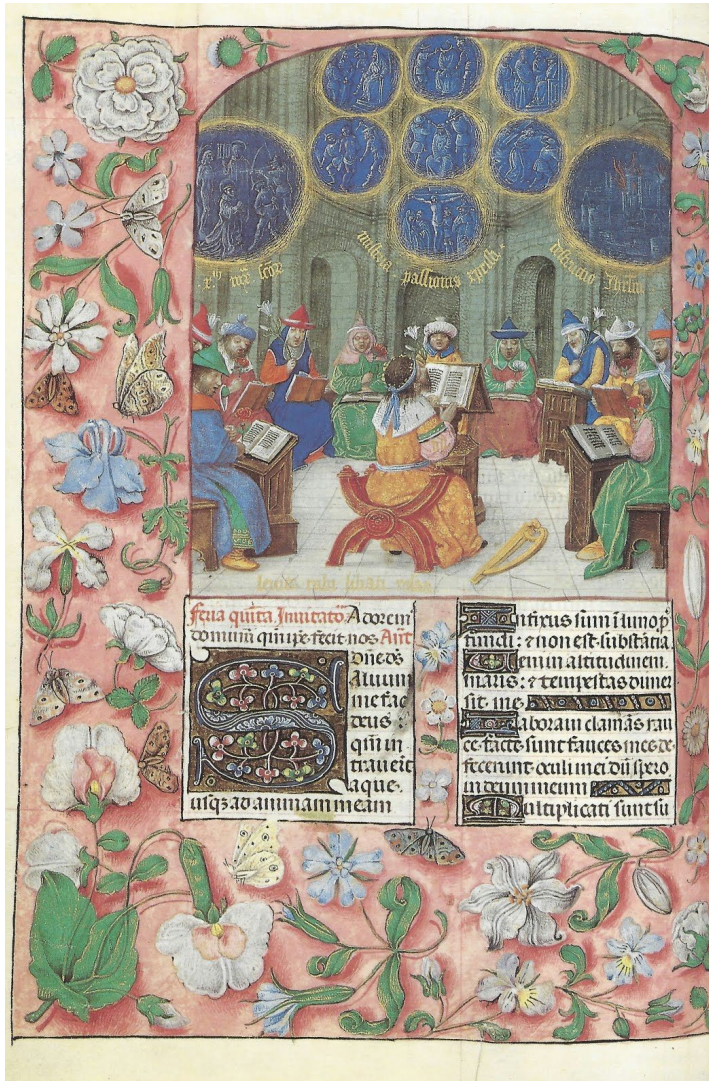 misteria passionis
destructio Iherlm
feria quinta Inuitato Adorem
dominum qui ipse fecit nos Ant
Saluum
me fac
deus :
qm in
trauerũt
aque
usqz ad animam meam
Infixus sum i limo p
fundi : et non est substãtia
Ueni in altitudinem
maris : et tempestas dimer
sit me
Laboraui clamãs rau
ce facte sunt fauces mee de
fecerunt oculi mei dũ spero
in deum meum
Multiplicati sunt su